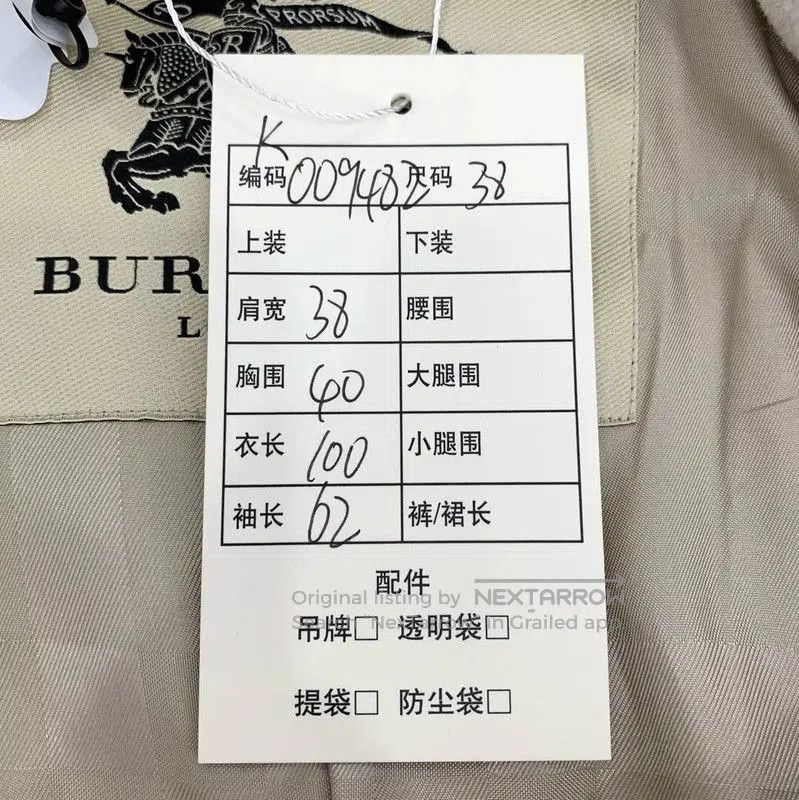 PRORSUM
R
BUR
L
K
编码 009482 尺码 38
上装 下装
肩宽 38 腰围
胸围 40 大腿围
衣长 100 小腿围
袖长 62 裤/裙长
配件
Original listing by NEXTARROW
吊牌□ 透明袋□
Search "Nextarrow" in Grailed app
提袋□ 防尘袋□